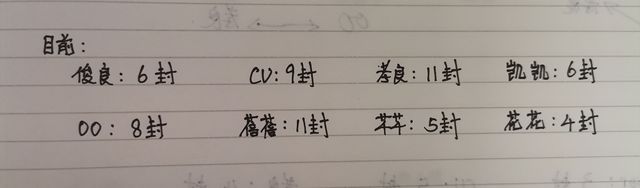 目前:
俊良: 6封 CV: 9封 孝良: 11封 凯凯: 6封
OO: 8封 蓓蓓: 11封 芊芊: 5封 花花: 4封